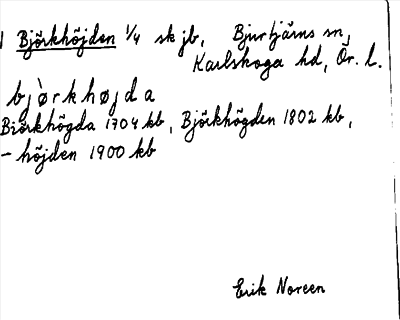 1 Björkhöjden 1/4 sk jb, Bjurtjärns sn,
Karlskoga hd, Ör. l.
bjòrkhøjda
Biörkhögda 1704 kb, Björkhögden 1802 kb,
- höjden 1900 kb
Erik Noreen